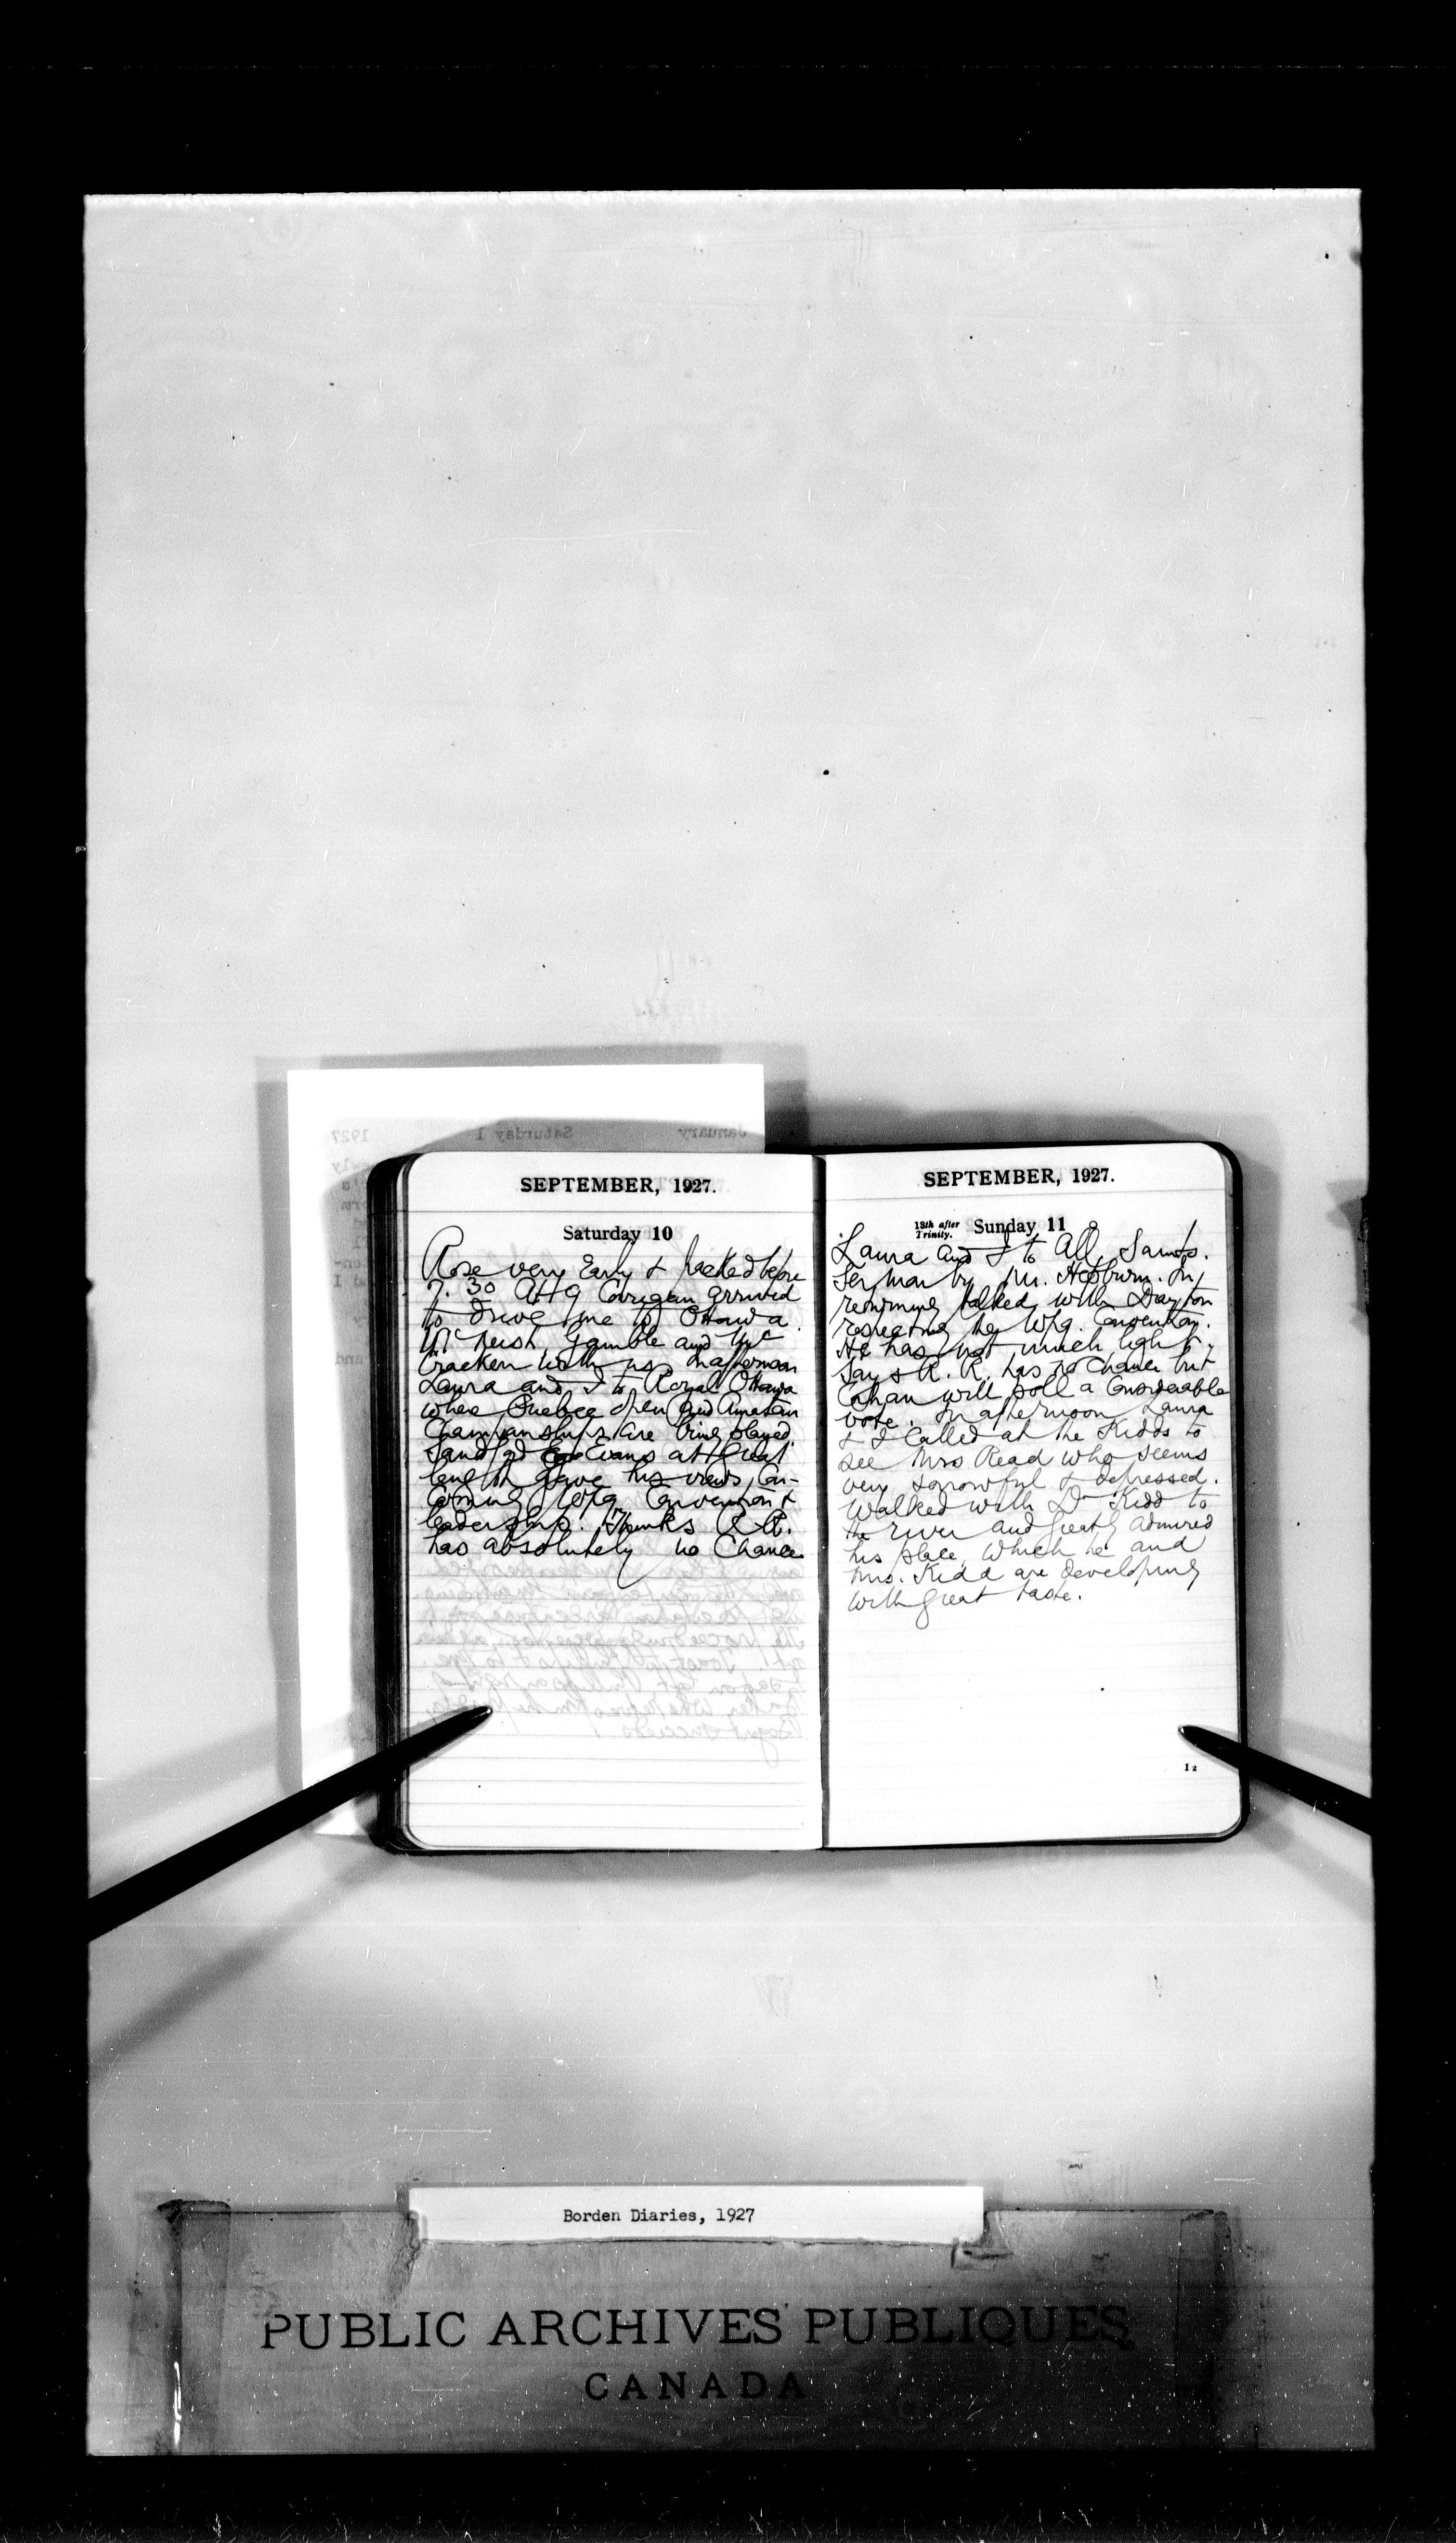 SEPTEMBER, 1927.
Saturday 10
Rose very Early & packed before
7.30 At 9 Corrigan arrived
to drive me to Ottawa.
McLeish, Gamble and Mc
Cracken with us. In afternoon
Laura and I to Royal Ottawa
where Quebec Open and Amateur
Championships are being played.
Sandford Evans at great
length gave his views Con-
cerning Wpg. Convention &
leadership. Thinks R.R.
has absolutely no Chance
SEPTEMBER, 1927.
13th after Trinity. Sunday 11
Laura and I to All Saints.
Sermon by Mr. Hepburn. In
returning talked with Drayton
respecting the Wpg. Convention.
He has not much light.
Says R. R. has no Chance but
Cahan will poll a Considerable
vote. In afternoon Laura
& I Called at the Kidds to
see Mrs Read who seems
very sorrowful & depressed.
Walked with Dr Kidd to
the river and greatly admired
his place, which he and
Mrs. Kidd are developing
with great taste.
12
January Saturday 1 1927
Borden Diaries, 1927
PUBLIC ARCHIVES PUBLIQUES
CANADA